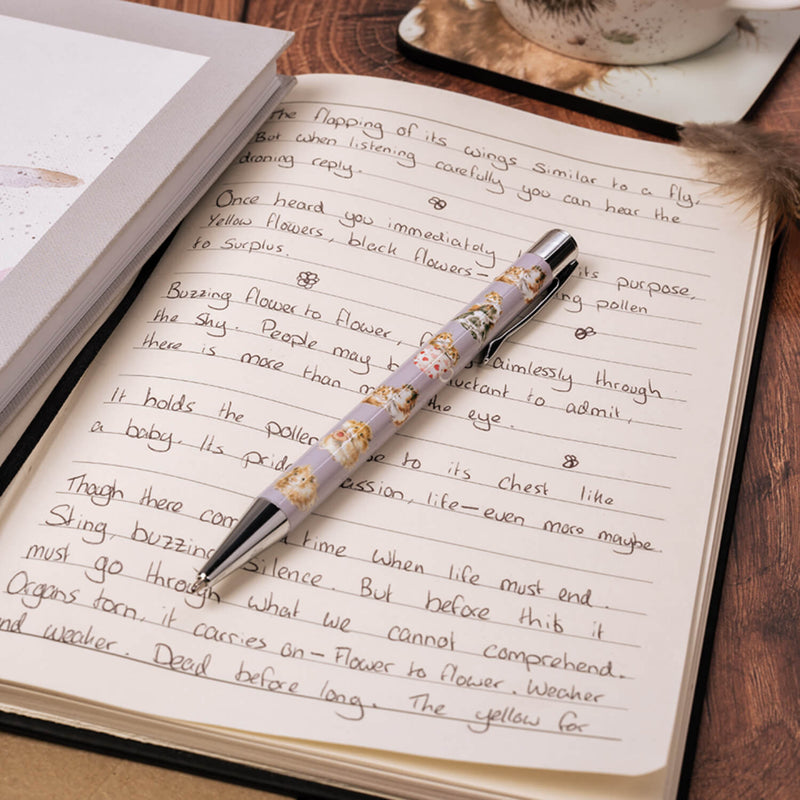 The flapping of its wings similar to a fly,
But when listening carefully you can hear the
droning reply.
Once heard you immediately its purpose,
Yellow flowers, black flowers- ing pollen
to surplus.
Buzzing flower to flower, aimlessly through
the sky. People may b luctant to admit,
there is more than m the eye.
It holds the pollen se to its chest like
a baby. Its prid assion, life-even more maybe.
Though there com a time when life must end.
Sting, buzzing silence. But before this it
must go through what we cannot comprehend.
Organs torn, it carries on - Flower to flower. Weaker
nd weaker. Dead before long. The yellow for